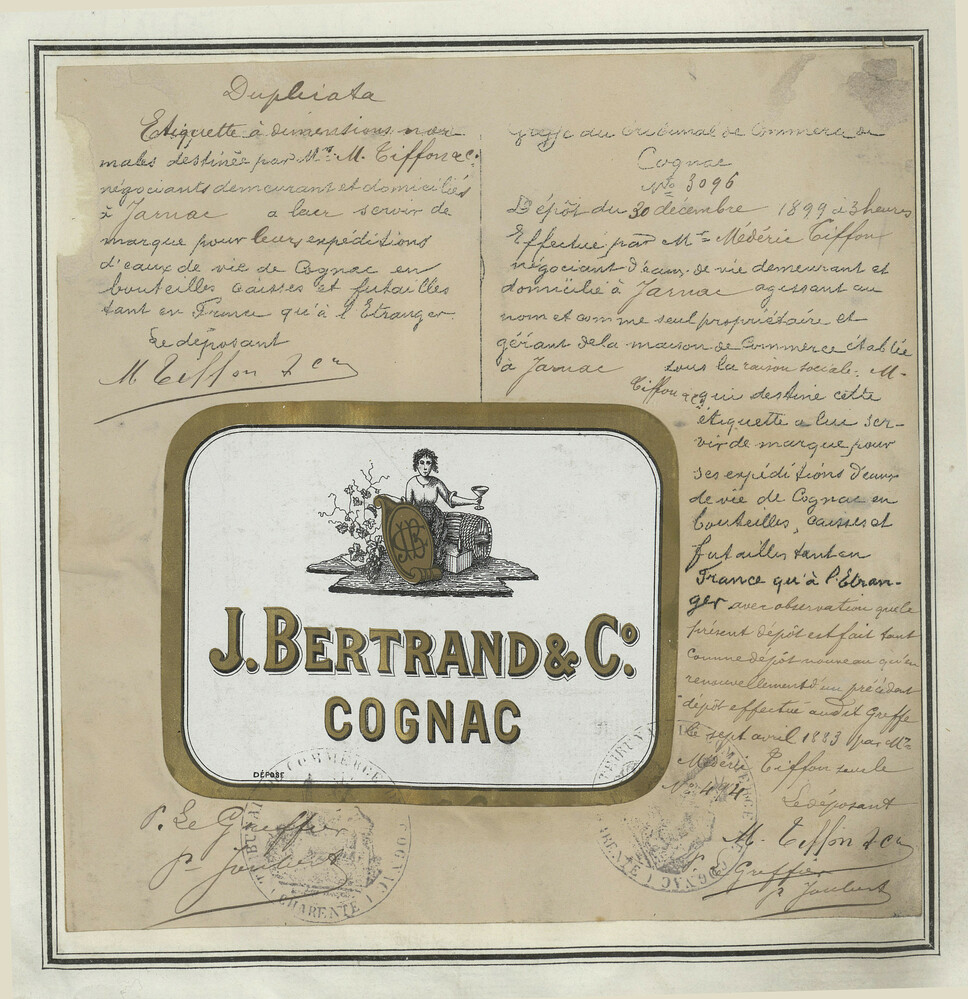 Duplicata
Etiquette à dimensions nor-
males destinée par Mrs M. Tiffon & Co.
négociants demeurant et domiciliés
à Jarnac a leur servir de
marque pour leurs expéditions
d'eaux de vie de Cognac en
bouteilles caisses et futailles
tant en France qu'à l'Etranger.
Le déposant
M Tiffon & Co
Greffe du Tribunal de Commerce de
Cognac
No 3096
Dépôt du 30 décembre 1899 à 3 heures
Effectué par Mr Médéric Tiffon
négociant d'eaux de vie demeurant et
domicilié à Jarnac agissant au
nom et comme seul propriétaire et
gérant de la maison de Commerce établie
à Jarnac sous la raison sociale: M.
Tiffon & Co qui destine cette
étiquette a lui ser-
vir de marque pour
ses expéditions d'eaux
de vie de Cognac en
bouteilles, caisses et
futailles tant en
France qu'à l'Etran-
ger avec observation que le
présent dépôt est fait tant
comme dépôt nouveau qu'en
renouvellement d'un précédent
dépôt effectué audit Greffe
le sept avril 1883 par Mr
Médéric Tiffon sous le
No 494
Le déposant
M. Tiffon & Co
Greffier
p. Joubert
JB
J. BERTRAND & Co.
COGNAC
DÉPOSÉ
P. Le Greffier
p. Joubert
TRIBUNAL DE COMMERCE COGNAC (CHARENTE)
TRIBUNAL COMMERCE COGNAC (CHARENTE)